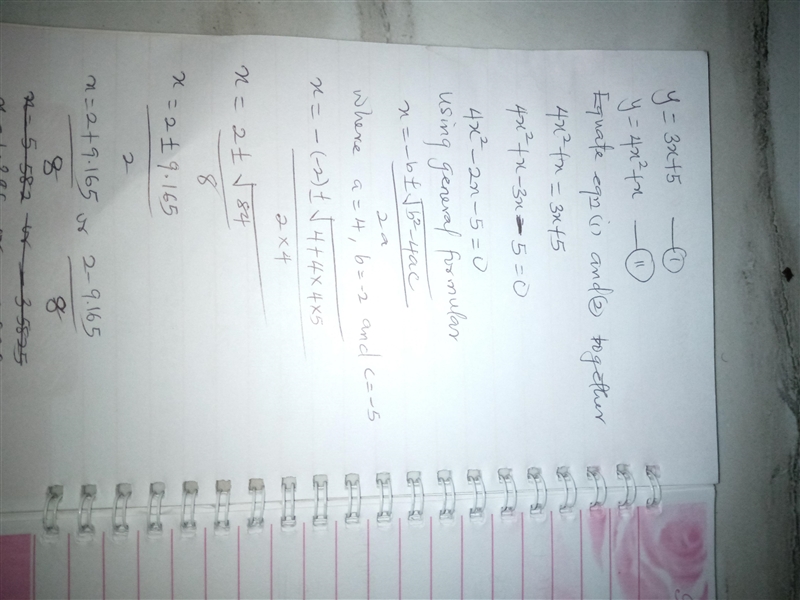 y = 3x+5 — (i)
y = 4x²+x — (ii)
Equate eqn (1) and (2) together
4x²+x = 3x+5
4x²+x-3x-5=0
4x²-2x-5=0
Using general formular
x = -b±√b²-4ac
2a
Where a=4, b=-2 and c=-5
x = -(-2)±√4+4×4×5
2×4
x = 2±√84
8
x = 2±9.165
2
x = 2+9.165 or 2-9.165
8 8